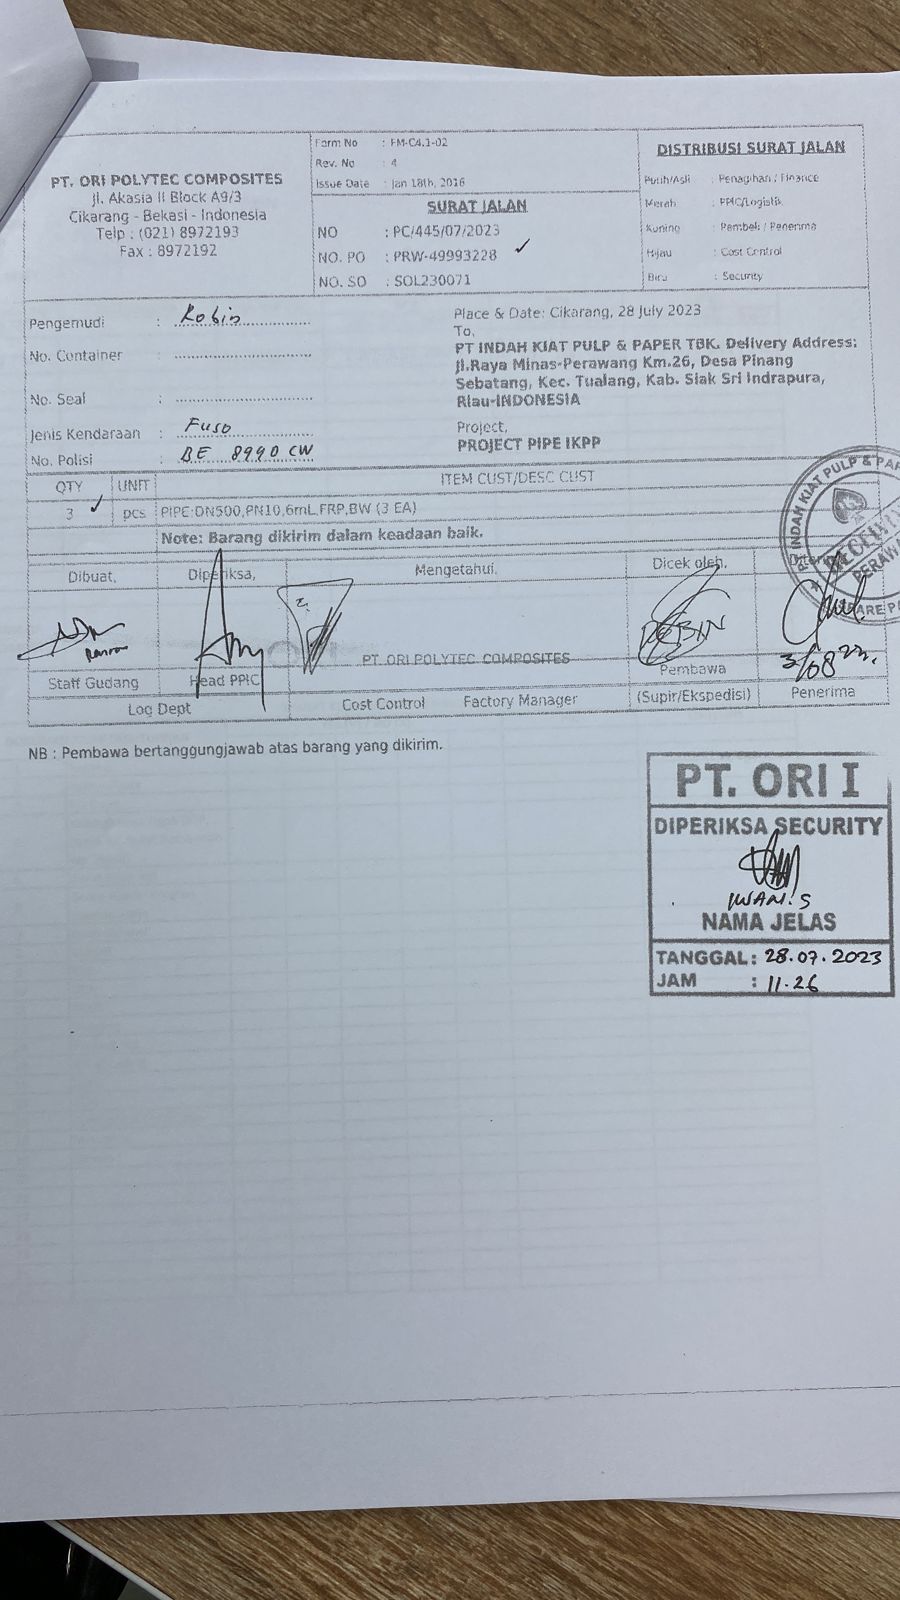 PT. ORI POLYTEC COMPOSITES
Jl. Akasia II Block A9/3
Cikarang - Bekasi - Indonesia
Telp : (021) 8972193
Fax : 8972192
Form No : FM-C4.1-02
Rev. No : 4
Issue Date : Jan 18th, 2016
SURAT JALAN
NO : PC/445/07/2023
NO. PO : PRW-49993228 ✓
NO. SO : SOL230071
DISTRIBUSI SURAT JALAN
Putih/Asli : Penagihan / Finance
Merah : PPIC/Logistik
Kuning : Pembeli / Penerima
Hijau : Cost Control
Biru : Security
Pengemudi : Robin
No. Container : ....................
No. Seal : ....................
Jenis Kendaraan : Fuso
No. Polisi : BE 8990 CW
Place & Date: Cikarang, 28 July 2023
To,
PT INDAH KIAT PULP & PAPER TBK. Delivery Address:
Jl.Raya Minas-Perawang Km.26, Desa Pinang
Sebatang, Kec. Tualang, Kab. Siak Sri Indrapura,
Riau-INDONESIA
Project,
PROJECT PIPE IKPP
QTY UNIT ITEM CUST/DESC CUST
3 ✓ pcs PIPE:DN500,PN10,6mL,FRP,BW (3 EA)
Note: Barang dikirim dalam keadaan baik.
INDAH KIAT PULP & PAP
Dibuat, Diperiksa, Mengetahui, Dicek oleh,
ROBIN
PT. ORI POLYTEC COMPOSITES
Staff Gudang Head PPIC Pembawa
Log Dept Cost Control Factory Manager (Supir/Ekspedisi) Penerima
NB : Pembawa bertanggungjawab atas barang yang dikirim.
PT. ORI I
DIPERIKSA SECURITY
IWAN.S
NAMA JELAS
TANGGAL: 28.07.2023
JAM : 11.26